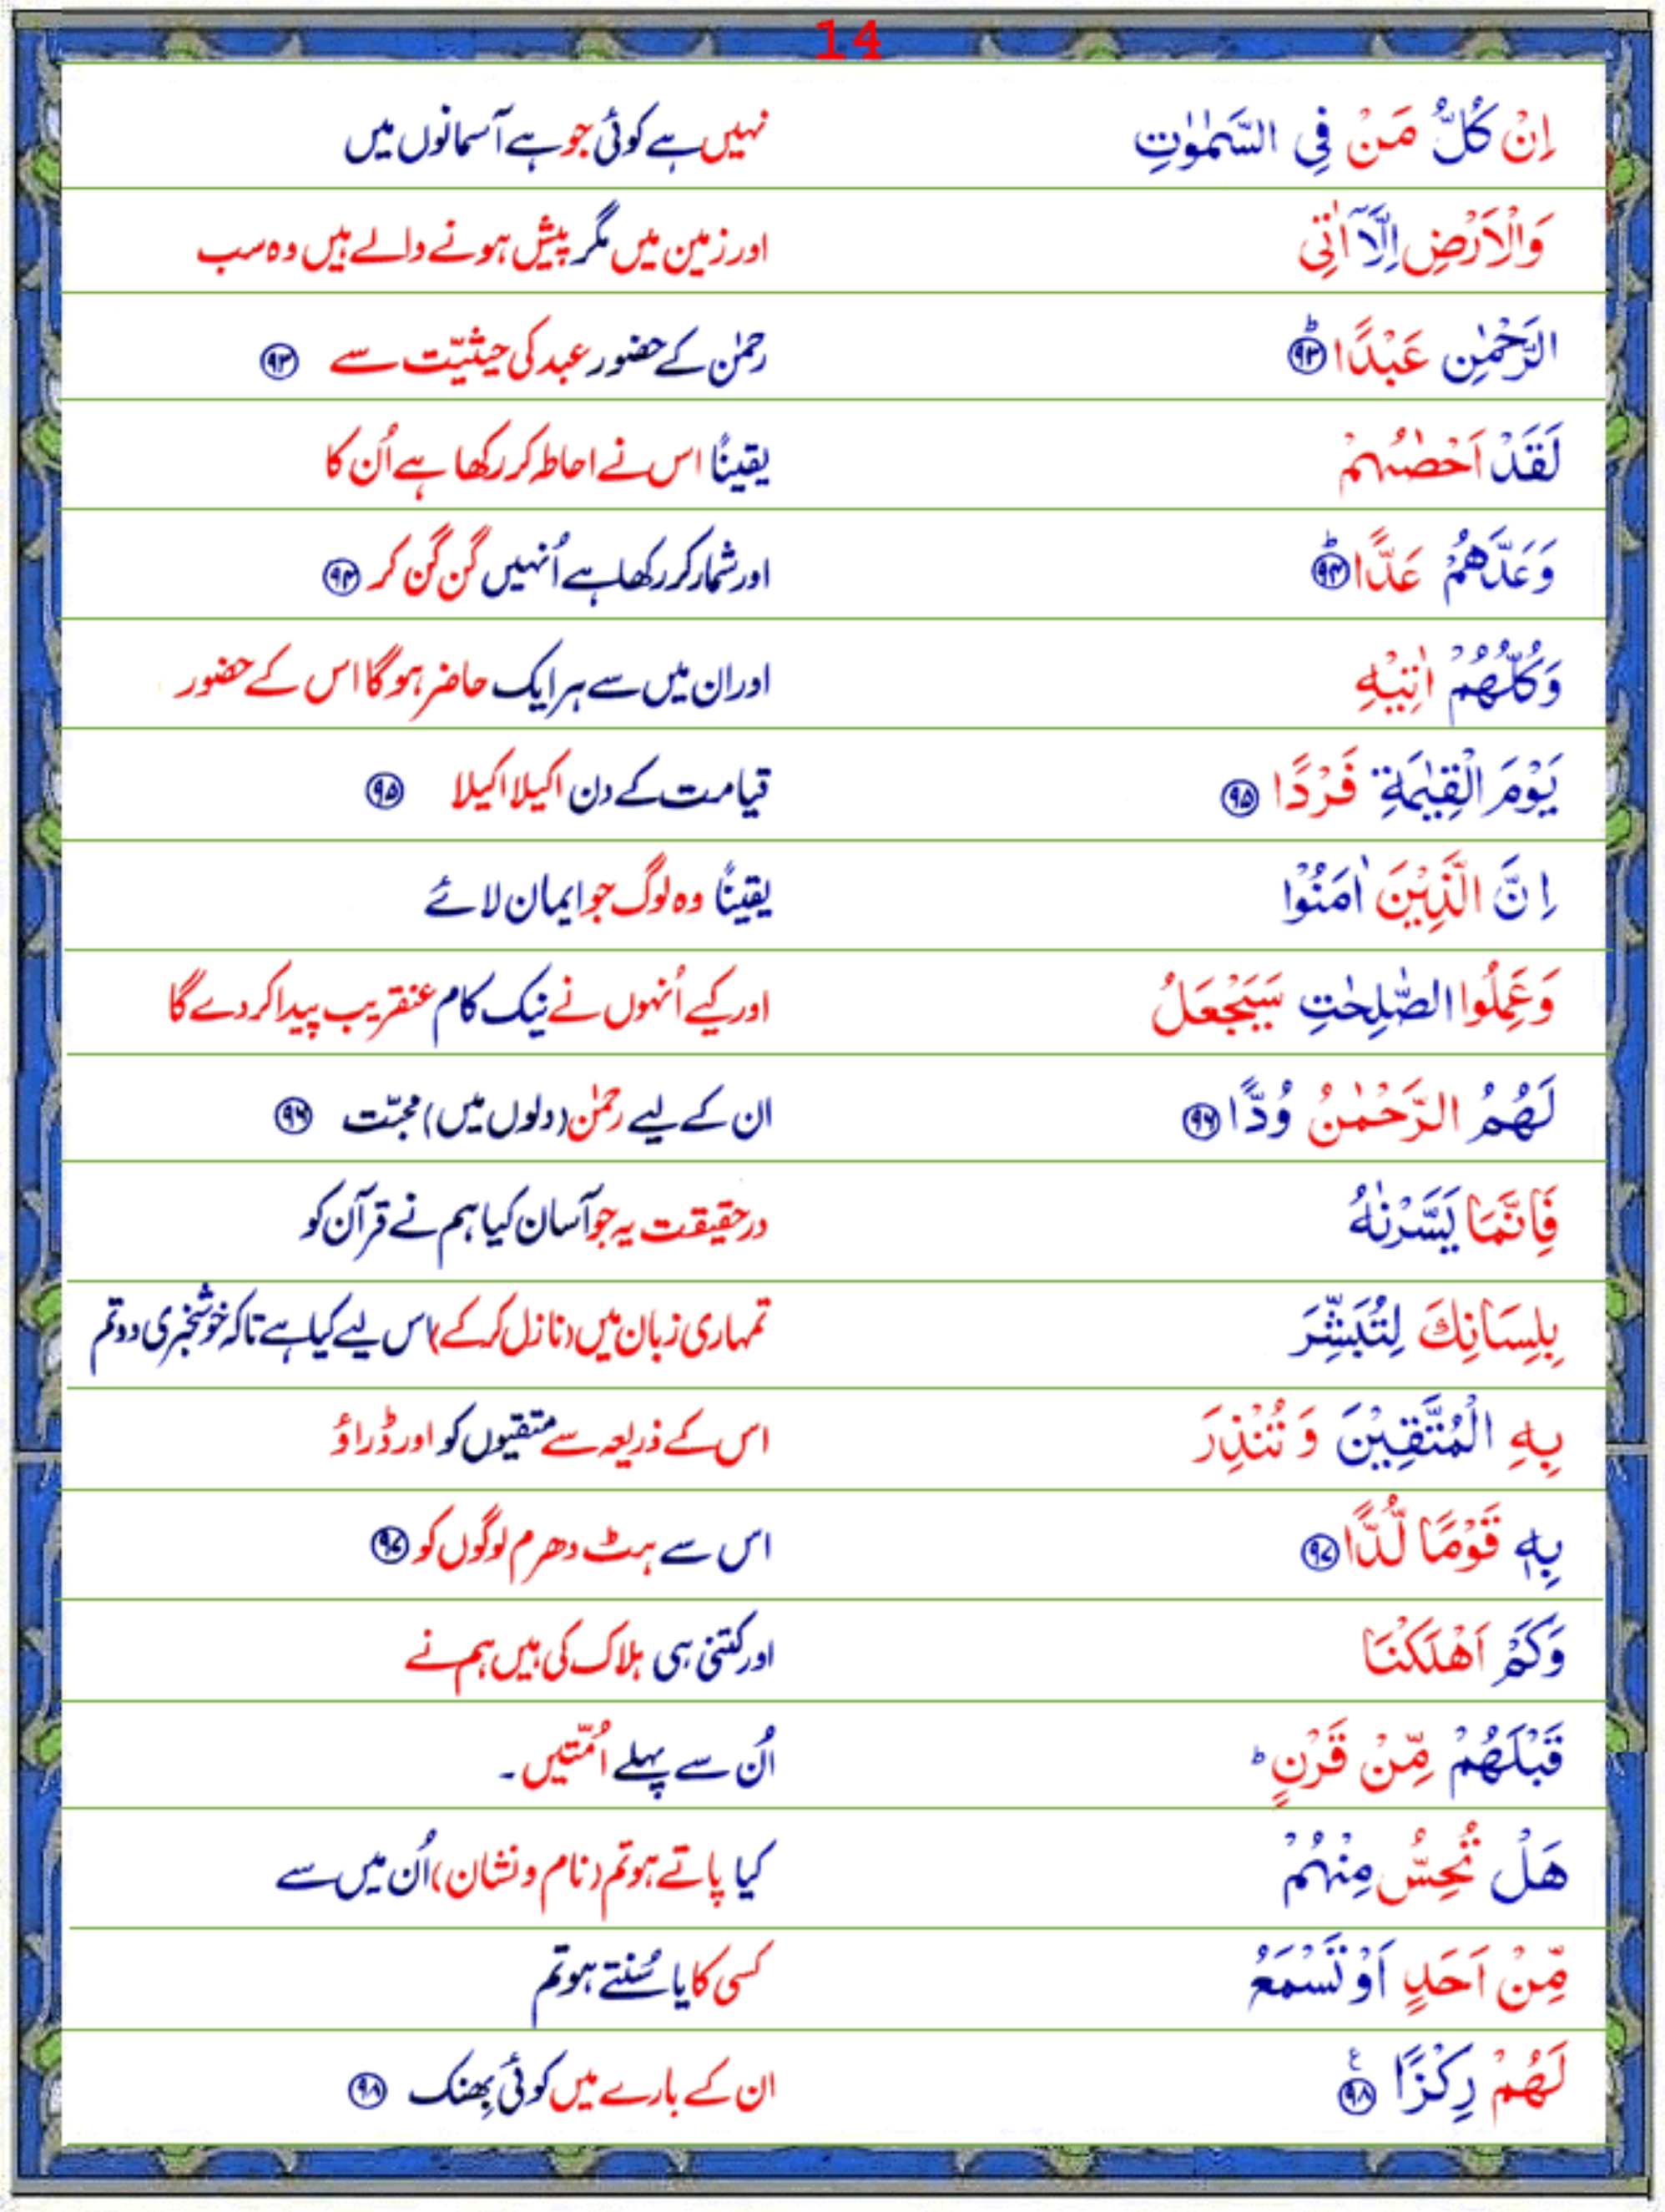 14
اِنْ كُلُّ مَنْ فِى السَّمٰوٰتِ نہیں ہے کوئی جو ہے آسمانوں میں
وَالْاَرْضِ اِلَّاۤ اٰتِى اور زمین میں مگر پیش ہونے والے ہیں وہ سب
الرَّحْمٰنِ عَبْدًاؕ ۹۳ رحمٰن کے حضور عبد کی حیثیّت سے ۹۳
لَقَدْ اَحْصٰٮهُمْ یقینًا اس نے احاطہ کر رکھا ہے اُن کا
وَعَدَّهُمْ عَدًّاؕ ۹۴ اور شمار کر رکھا ہے اُنہیں گن گن کر ۹۴
وَكُلُّهُمْ اٰتِيْهِ اور ان میں سے ہر ایک حاضر ہو گا اس کے حضور
يَوْمَ الْقِيٰمَةِ فَرْدًا ۹۵ قیامت کے دن اکیلا اکیلا ۹۵
اِنَّ الَّذِيْنَ اٰمَنُوْا یقینًا وہ لوگ جو ایمان لائے
وَعَمِلُوا الصّٰلِحٰتِ سَيَجْعَلُ اور کیے اُنہوں نے نیک کام عنقریب پیدا کر دے گا
لَهُمُ الرَّحْمٰنُ وُدًّا ۹۶ ان کے لیے رحمٰن (دلوں میں) محبّت ۹۶
فَاِنَّمَا يَسَّرْنٰهُ درحقیقت یہ جو آسان کیا ہم نے قرآن کو
بِلِسَانِكَ لِتُبَشِّرَ تمہاری زبان میں (نازل کر کے) اس لیے کیا ہے تاکہ خوشخبری دو تم
بِهِ الْمُتَّقِيْنَ وَ تُنْذِرَ اس کے ذریعہ سے متقیوں کو اور ڈراؤ
بِهٖ قَوْمًا لُّدًّا ۹۷ اس سے ہٹ دھرم لوگوں کو ۹۷
وَكَمْ اَهْلَكْنَا اور کتنی ہی ہلاک کی ہیں ہم نے
قَبْلَهُمْ مِّنْ قَرْنٍؕ اُن سے پہلے اُمّتیں۔
هَلْ تُحِسُّ مِنْهُمْ کیا پاتے ہو تم (نام و نشان) اُن میں سے
مِّنْ اَحَدٍ اَوْ تَسْمَعُ کسی کا یا سُنتے ہو تم
لَهُمْ رِكْزًا ۹۸ ع ان کے بارے میں کوئی بھِنک ۹۸